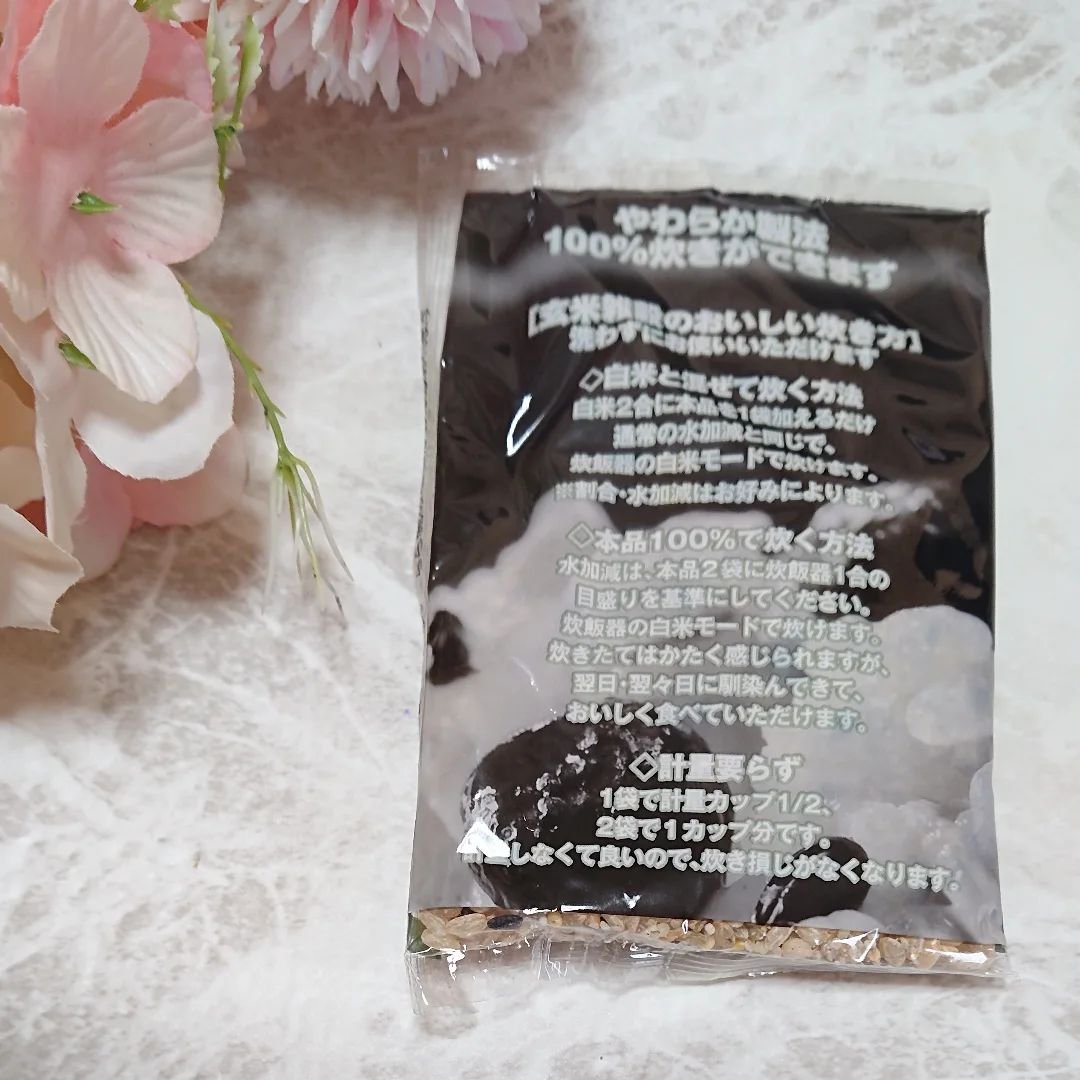 やわらか製法
100%炊きができます
[玄米雑穀のおいしい炊き方]
洗わずにお使いいただけます
◇白米と混ぜて炊く方法
白米2合に本品を1袋加えるだけ
通常の水加減と同じで、
炊飯器の白米モードで炊けます。
※割合・水加減はお好みによります。
◇本品100%で炊く方法
水加減は、本品2袋に炊飯器1合の
目盛りを基準にしてください。
炊飯器の白米モードで炊けます。
炊きたてはかたく感じられますが、
翌日・翌々日に馴染んできて、
おいしく食べていただけます。
◇計量要らず
1袋で計量カップ1/2、
2袋で1カップ分です。
計量しなくて良いので、炊き損じがなくなります。